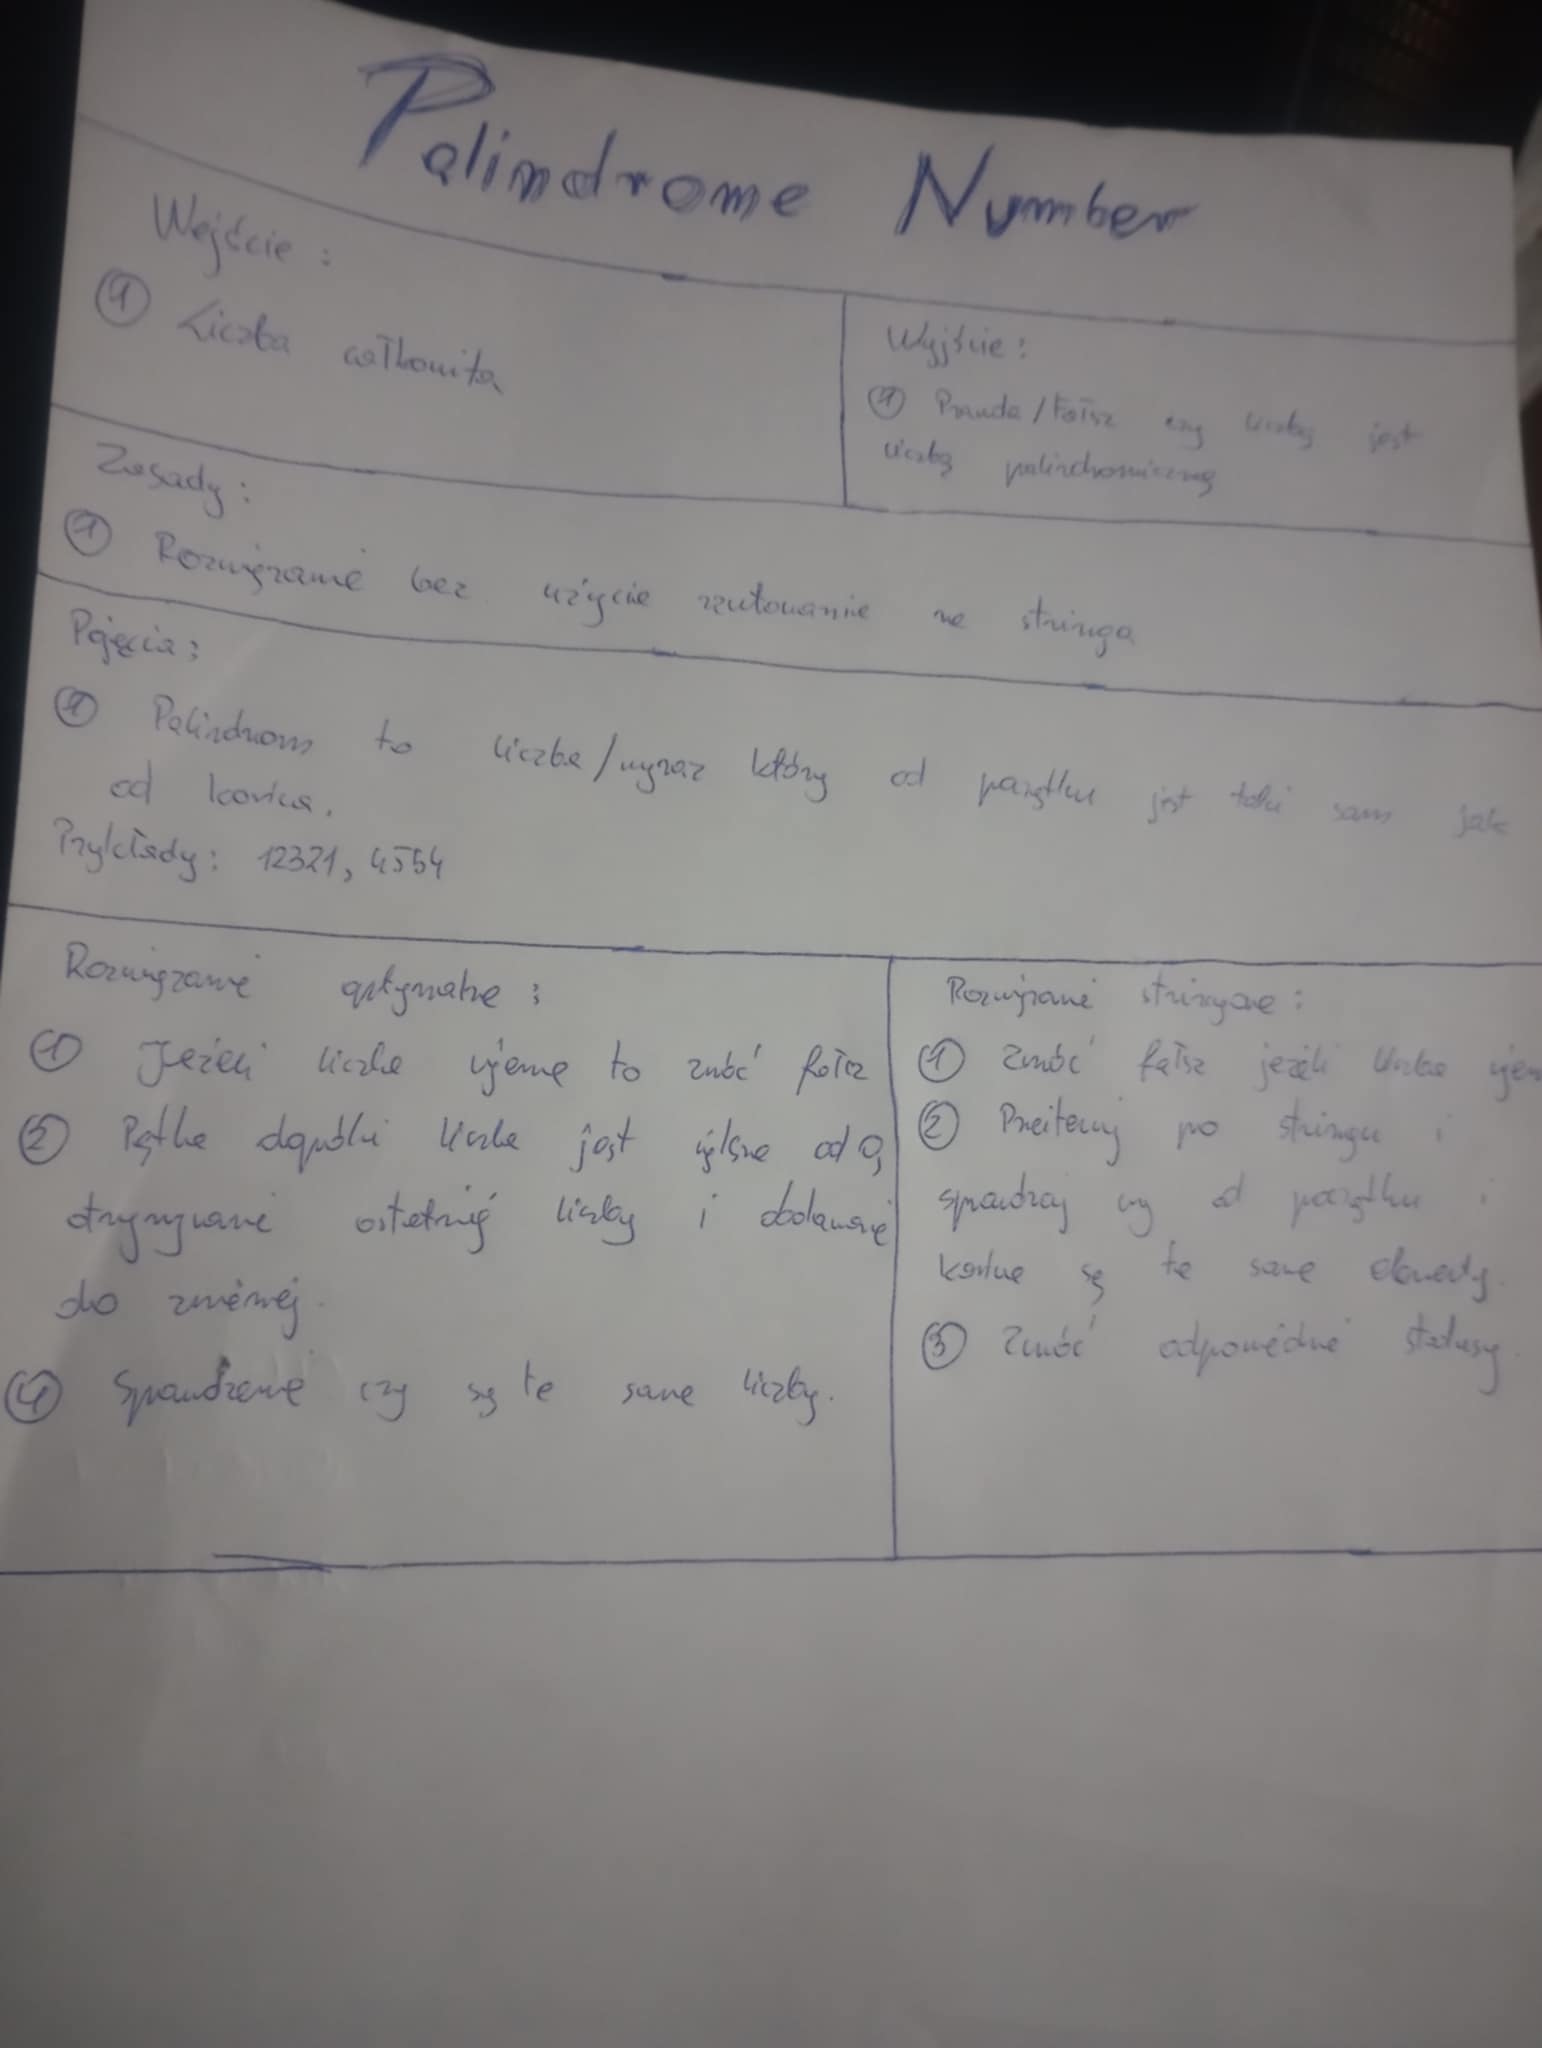 Palindrome Number
Wejście:
① Liczba całkowita
Wyjście:
① Prawda/Fałsz czy liczba jest
liczbą palindromiczną
Zasady:
① Rozwiązanie bez użycia rzutowania na stringa
Pojęcia:
① Palindrom to liczba/wyraz który od początku jest taki sam jak
od końca.
Przykłady: 12321, 4554
Rozwiązanie optymalne:
① Jeżeli liczba ujemna to zwróć fałsz
② Pętla dopóki liczba jest większa od 0,
otrzymywanie ostatniej liczby i dodawanie
do zmiennej.
④ Sprawdzenie czy są te same liczby.
Rozwiązanie stringowe:
① Zwróć fałsz jeżeli liczba ujem
② Przeiteruj po stringu i
sprawdzaj czy od początku i
końca są te same elementy.
③ Zwróć odpowiednie statusy.